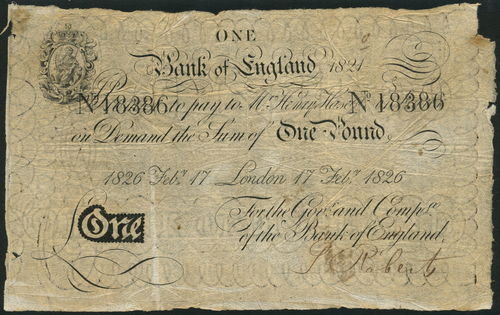 ONE
Bank of England 1821
No 18386 to pay to Mr. Henry Hase No 18386
on Demand the Sum of One Pound
1826 Feby. 17 London 17 Feby. 1826
For the Govr. and Compa.
of the Bank of England.
£ One
Roberts